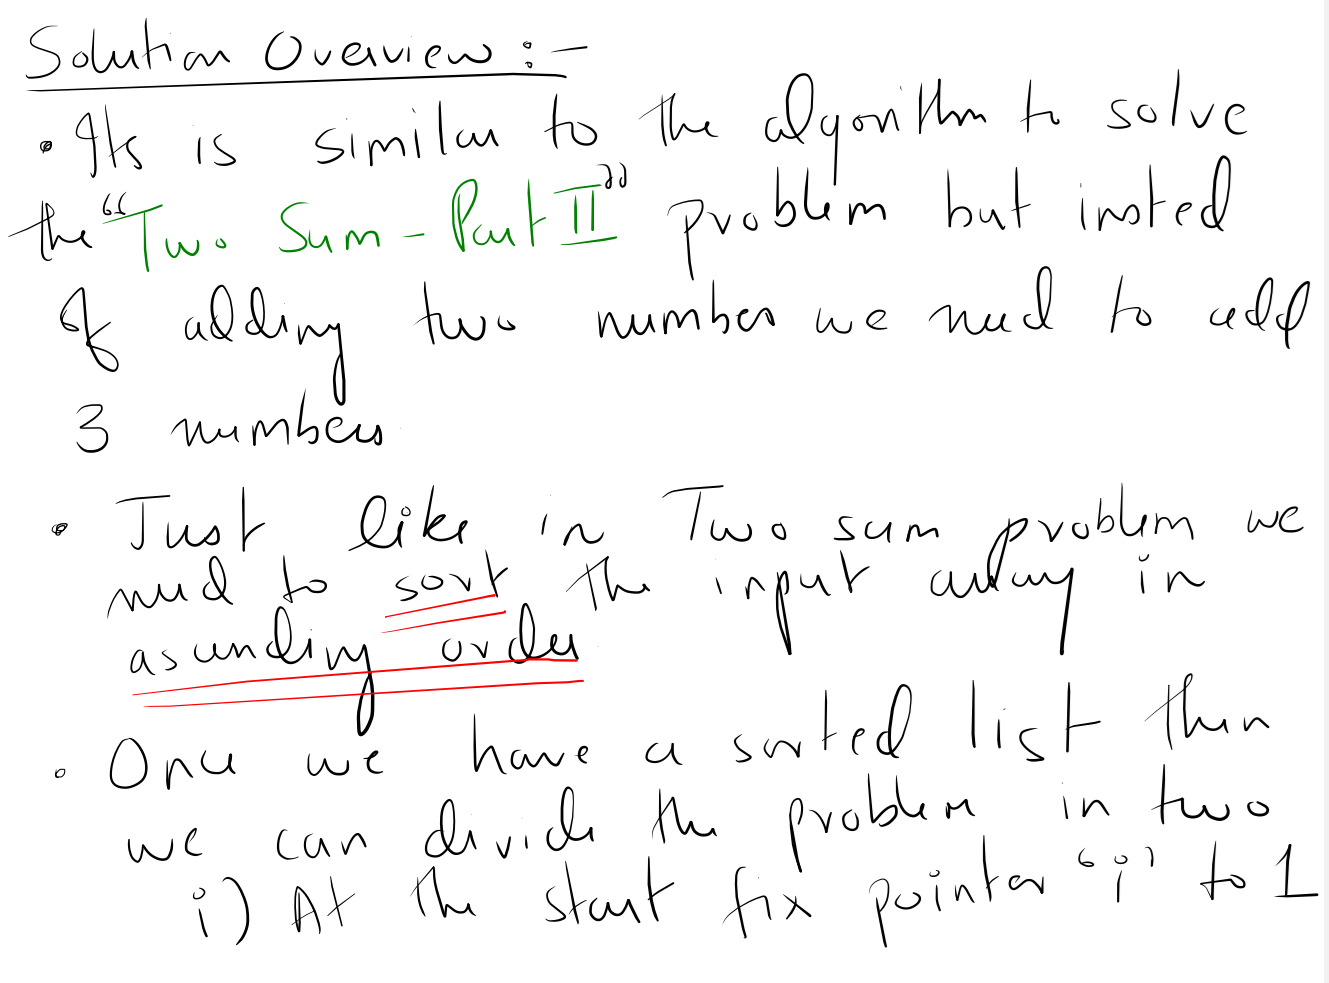 Solution Overview :-
• Its is similar to the algorithm to solve
the "Two Sum - Part II" problem but insted
of adding two number we need to add
3 numbers
• Just like in Two sum problem we
need to sort the input array in
ascending order
• Once we have a sorted list then
we can divide the problem in two
i) At the start fix pointer 'i' to 1